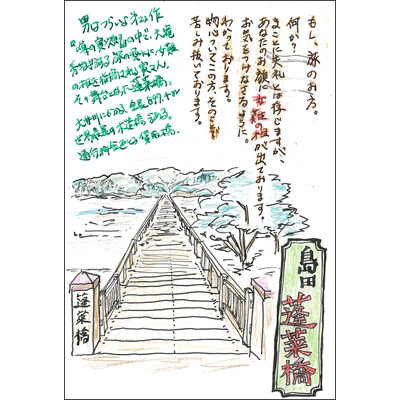 もし、旅のお方。
何か?
まことに失礼とは存じますが、
あなたのお顔に女難の相が出ております。
お気をつけなさるように。
わかっております。
物心ついてこの方、そのことで
苦しみ抜いております。
男はつらいよ 第22作
「噂の寅次郎」の中で、大滝
秀治扮する旅の雲水に、女難
の相を指摘される寅さん。
その舞台 蓬莱橋。
大井川にかかる、全長897.4m
世界最長の木造橋である。
通行料金をとる賃取橋。
蓬莱橋
島田
蓬莱橋